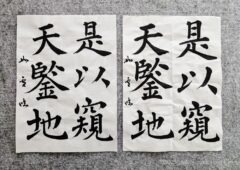 是以窺
天鑒地
是以窺
天鑒地